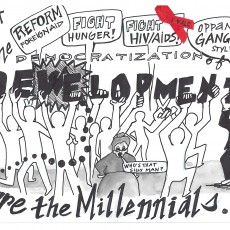 REFORM
FOREIGN AID
FIGHT
HUNGER!
FIGHT
HIV/AIDS!
OPPAN
GANG
STYL
DEMOCRATIZATION of
DEVELOPMENT
WHO'S THAT
MAN?
re the Millennials.